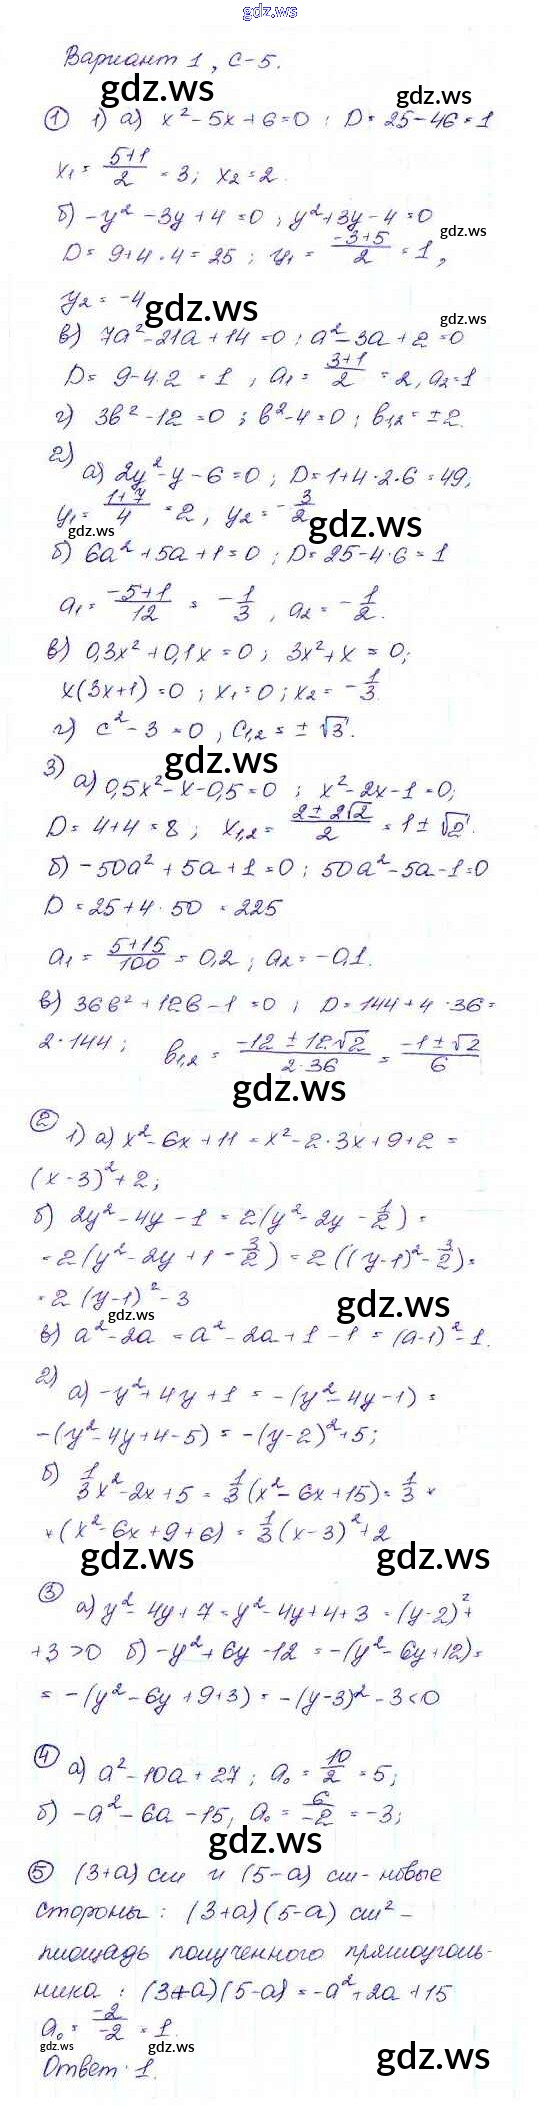 gdz.ws
Вариант 1, С-5.
gdz.ws gdz.ws
① 1) а) x² - 5x + 6 = 0 ; D = 25 - 4·6 = 1
x₁ = (5+1)/2 = 3; x₂ = 2.
б) -y² - 3y + 4 = 0 ; y² + 3y - 4 = 0
gdz.ws
D = 9 + 4 · 4 = 25 ; y₁ = (-3+5)/2 = 1,
y₂ = -4
gdz.ws gdz.ws
в) 7a² - 21a + 14 = 0 ; a² - 3a + 2 = 0
D = 9 - 4·2 = 1 , a₁ = (3+1)/2 = 2, a₂ = 1
г) 3b² - 12 = 0 ; b² - 4 = 0 ; b₁,₂ = ±2.
2)
а) 2y² - y - 6 = 0 ; D = 1 + 4 · 2 · 6 = 49,
y₁ = (1+7)/4 = 2 , y₂ = -3/2
gdz.ws gdz.ws
б) 6a² + 5a + 1 = 0 ; D = 25 - 4·6 = 1
a₁ = (-5+1)/12 = -1/3 , a₂ = -1/2.
в) 0,3x² + 0,1x = 0 ; 3x² + x = 0;
x(3x+1) = 0 ; x₁ = 0 ; x₂ = -1/3
г) c² - 3 = 0 , c₁,₂ = ± √3.
gdz.ws
3)
а) 0,5x² - x - 0,5 = 0 ; x² - 2x - 1 = 0;
D = 4 + 4 = 8 ; x₁,₂ = (2 ± 2√2)/2 = 1 ± √2.
б) -50a² + 5a + 1 = 0 ; 50a² - 5a - 1 = 0
D = 25 + 4 · 50 = 225
a₁ = (5+15)/100 = 0,2 ; a₂ = -0,1.
в) 36b² + 12b - 1 = 0 ; D = 144 + 4 · 36 =
2 · 144 ; b₁,₂ = (-12 ± 12√2)/(2·36) = (-1 ± √2)/6
gdz.ws
② 1) а) x² - 6x + 11 = x² - 2 · 3x + 9 + 2 =
(x - 3)² + 2;
б) 2y² - 4y - 1 = 2(y² - 2y - 1/2) =
= 2(y² - 2y + 1 - 3/2) = 2((y-1)² - 3/2) =
= 2(y-1)² - 3
gdz.ws gdz.ws
в) a² - 2a = a² - 2a + 1 - 1 = (a-1)² - 1.
2)
а) -y² + 4y + 1 = -(y² - 4y - 1) =
-(y² - 4y + 4 - 5) = -(y-2)² + 5;
б) 1/3x² - 2x + 5 = 1/3(x² - 6x + 15) = 1/3 *
* (x² - 6x + 9 + 6) = 1/3(x-3)² + 2
gdz.ws gdz.ws
③ а) y² - 4y + 7 = y² - 4y + 4 + 3 = (y-2)² +
+ 3 > 0 б) -y² + 6y - 12 = -(y² - 6y + 12) =
= -(y² - 6y + 9 + 3) = -(y-3)² - 3 < 0
④ а) a² - 10a + 27 ; a₀ = 10/2 = 5;
б) -a² - 6a - 15, a₀ = 6/-2 = -3;
gdz.ws
⑤ (3+a) см и (5-a) см - новые
стороны : (3+a)(5-a) см² -
площадь полученного прямоуголь-
ника : (3+a)(5-a) = -a² + 2a + 15
a₀ = -2/-2 = 1.
gdz.ws gdz.ws gdz.ws
Ответ · 1.